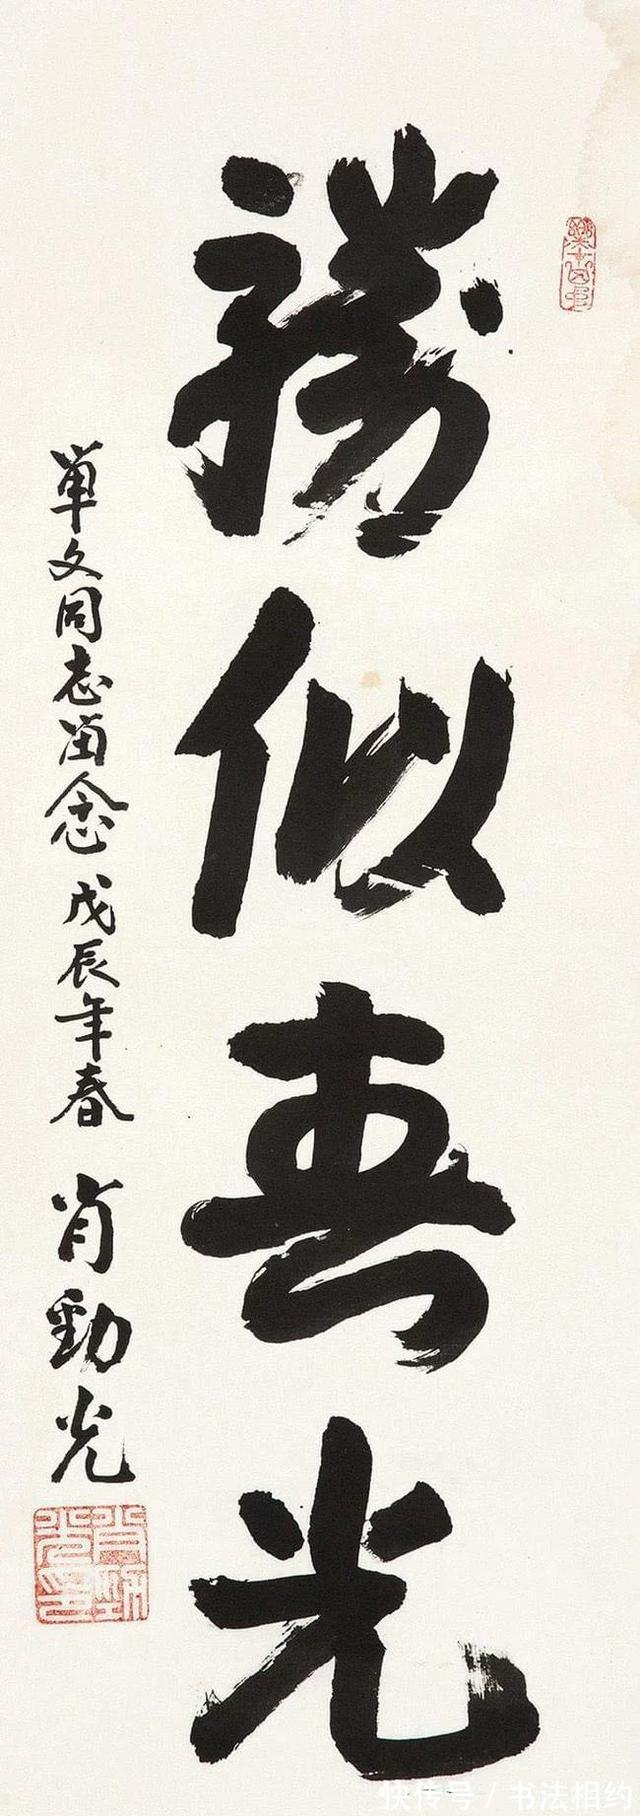 勝似春光
單文同志留念 戊辰年春 肖勁光
快传号 / 书法相约